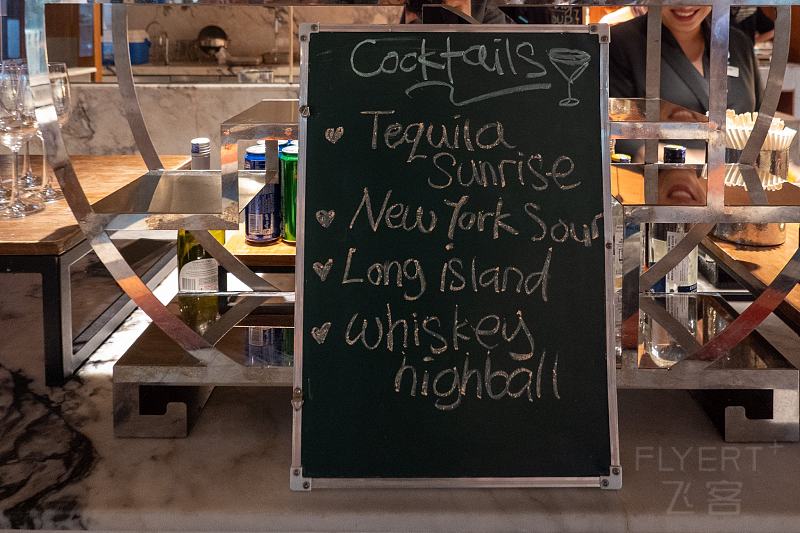 Cocktails
Tequila
Sunrise
New York Sour
Long island
whiskey
highball
FLYERT+
飞客